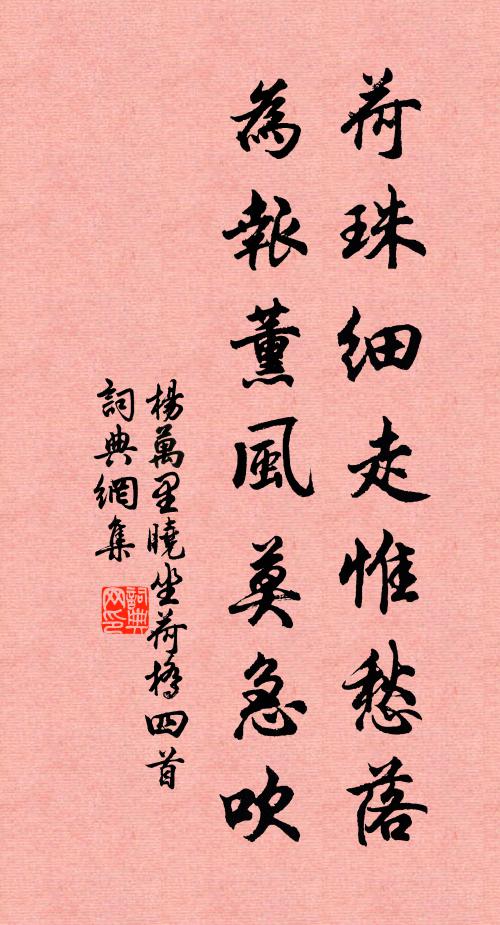 荷珠細走惟愁落
為報薰風莫急吹
楊萬里曉坐荷橋四首
詞典網集
詞典网印